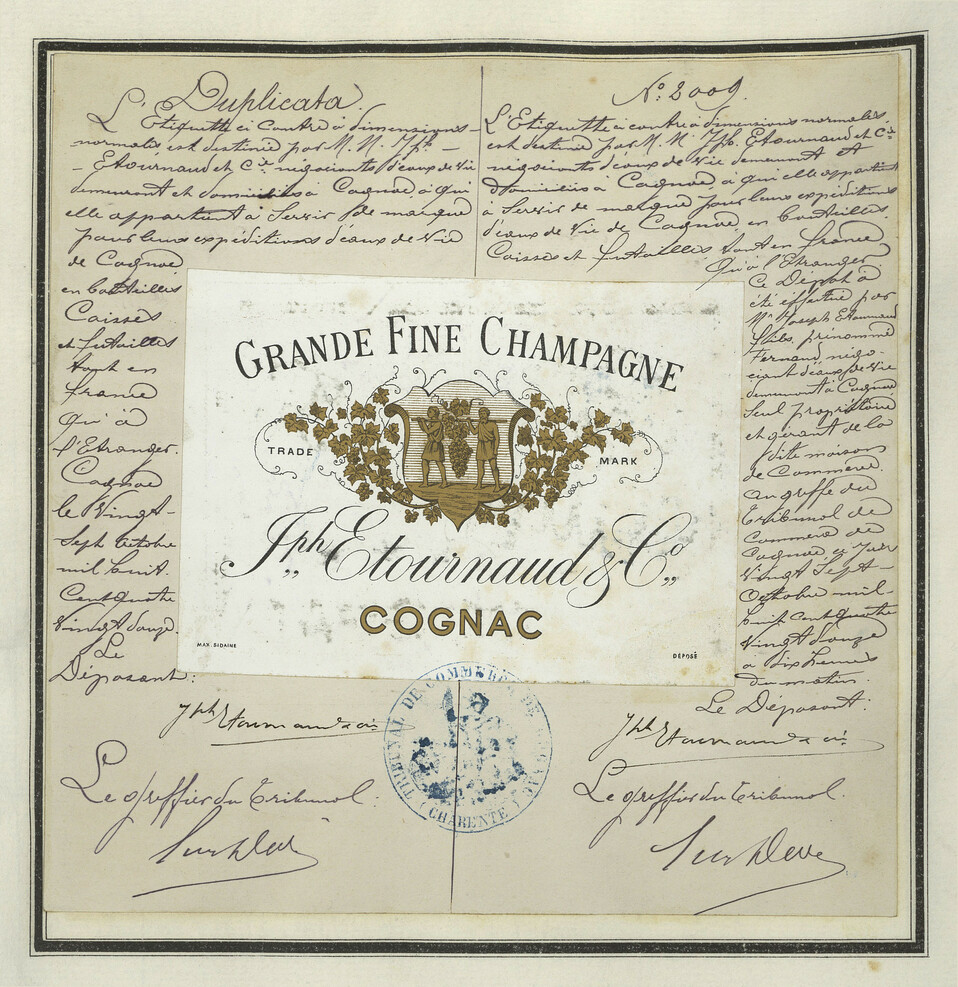 Duplicata.
L'Etiquette ci contre à dimensions
normales est destinée par M. M. Jph.
Etournaud et Cie négociants d'eaux de vie
demeurant et domiciliés à Cognac, à qui
elle appartient à servir de marque
pour leurs expéditions d'eaux de vie
de Cognac
en bouteilles
Caisses
et futailles
tant en
france
qu'à
l'Etranger.
Cognac
le Vingt-
Sept Octobre
mil huit
Cent quatre
Vingt douze.
Le
Déposant:
Jph Etournaud & Cie
Le greffier du Tribunal:
No. 2009.
L'Etiquette ci contre à dimensions normales
est destinée par M. M. Jph. Etournaud et Cie
négociants d'eaux de vie demeurant et
domiciliés à Cognac, à qui elle appartient
à servir de marque pour leurs expéditions
d'eaux de vie de Cognac, en bouteilles,
Caisses et futailles tant en france
qu'à l'Etranger
Ce Dépôt a
été effectué par
Mr Joseph Etournaud
fils, prénommé
Fernand négo-
ciant d'eaux de vie
demeurant à Cognac
seul propriétaire
et gérant de la
dite maison
de Commerce.
au greffe du
Tribunal de
Commerce de
Cognac, ce jour
Vingt Sept
Octobre mil
huit cent quatre
Vingt douze
à dix heures
du matin.
Le Déposant:
Jph Etournaud & Cie
Le greffier du Tribunal.
GRANDE FINE CHAMPAGNE
TRADE MARK
Jph Etournaud & Co
COGNAC
MAX. SIDAINE
DÉPOSÉ
TRIBUNAL DE COMMERCE DE COGNAC
(CHARENTE)